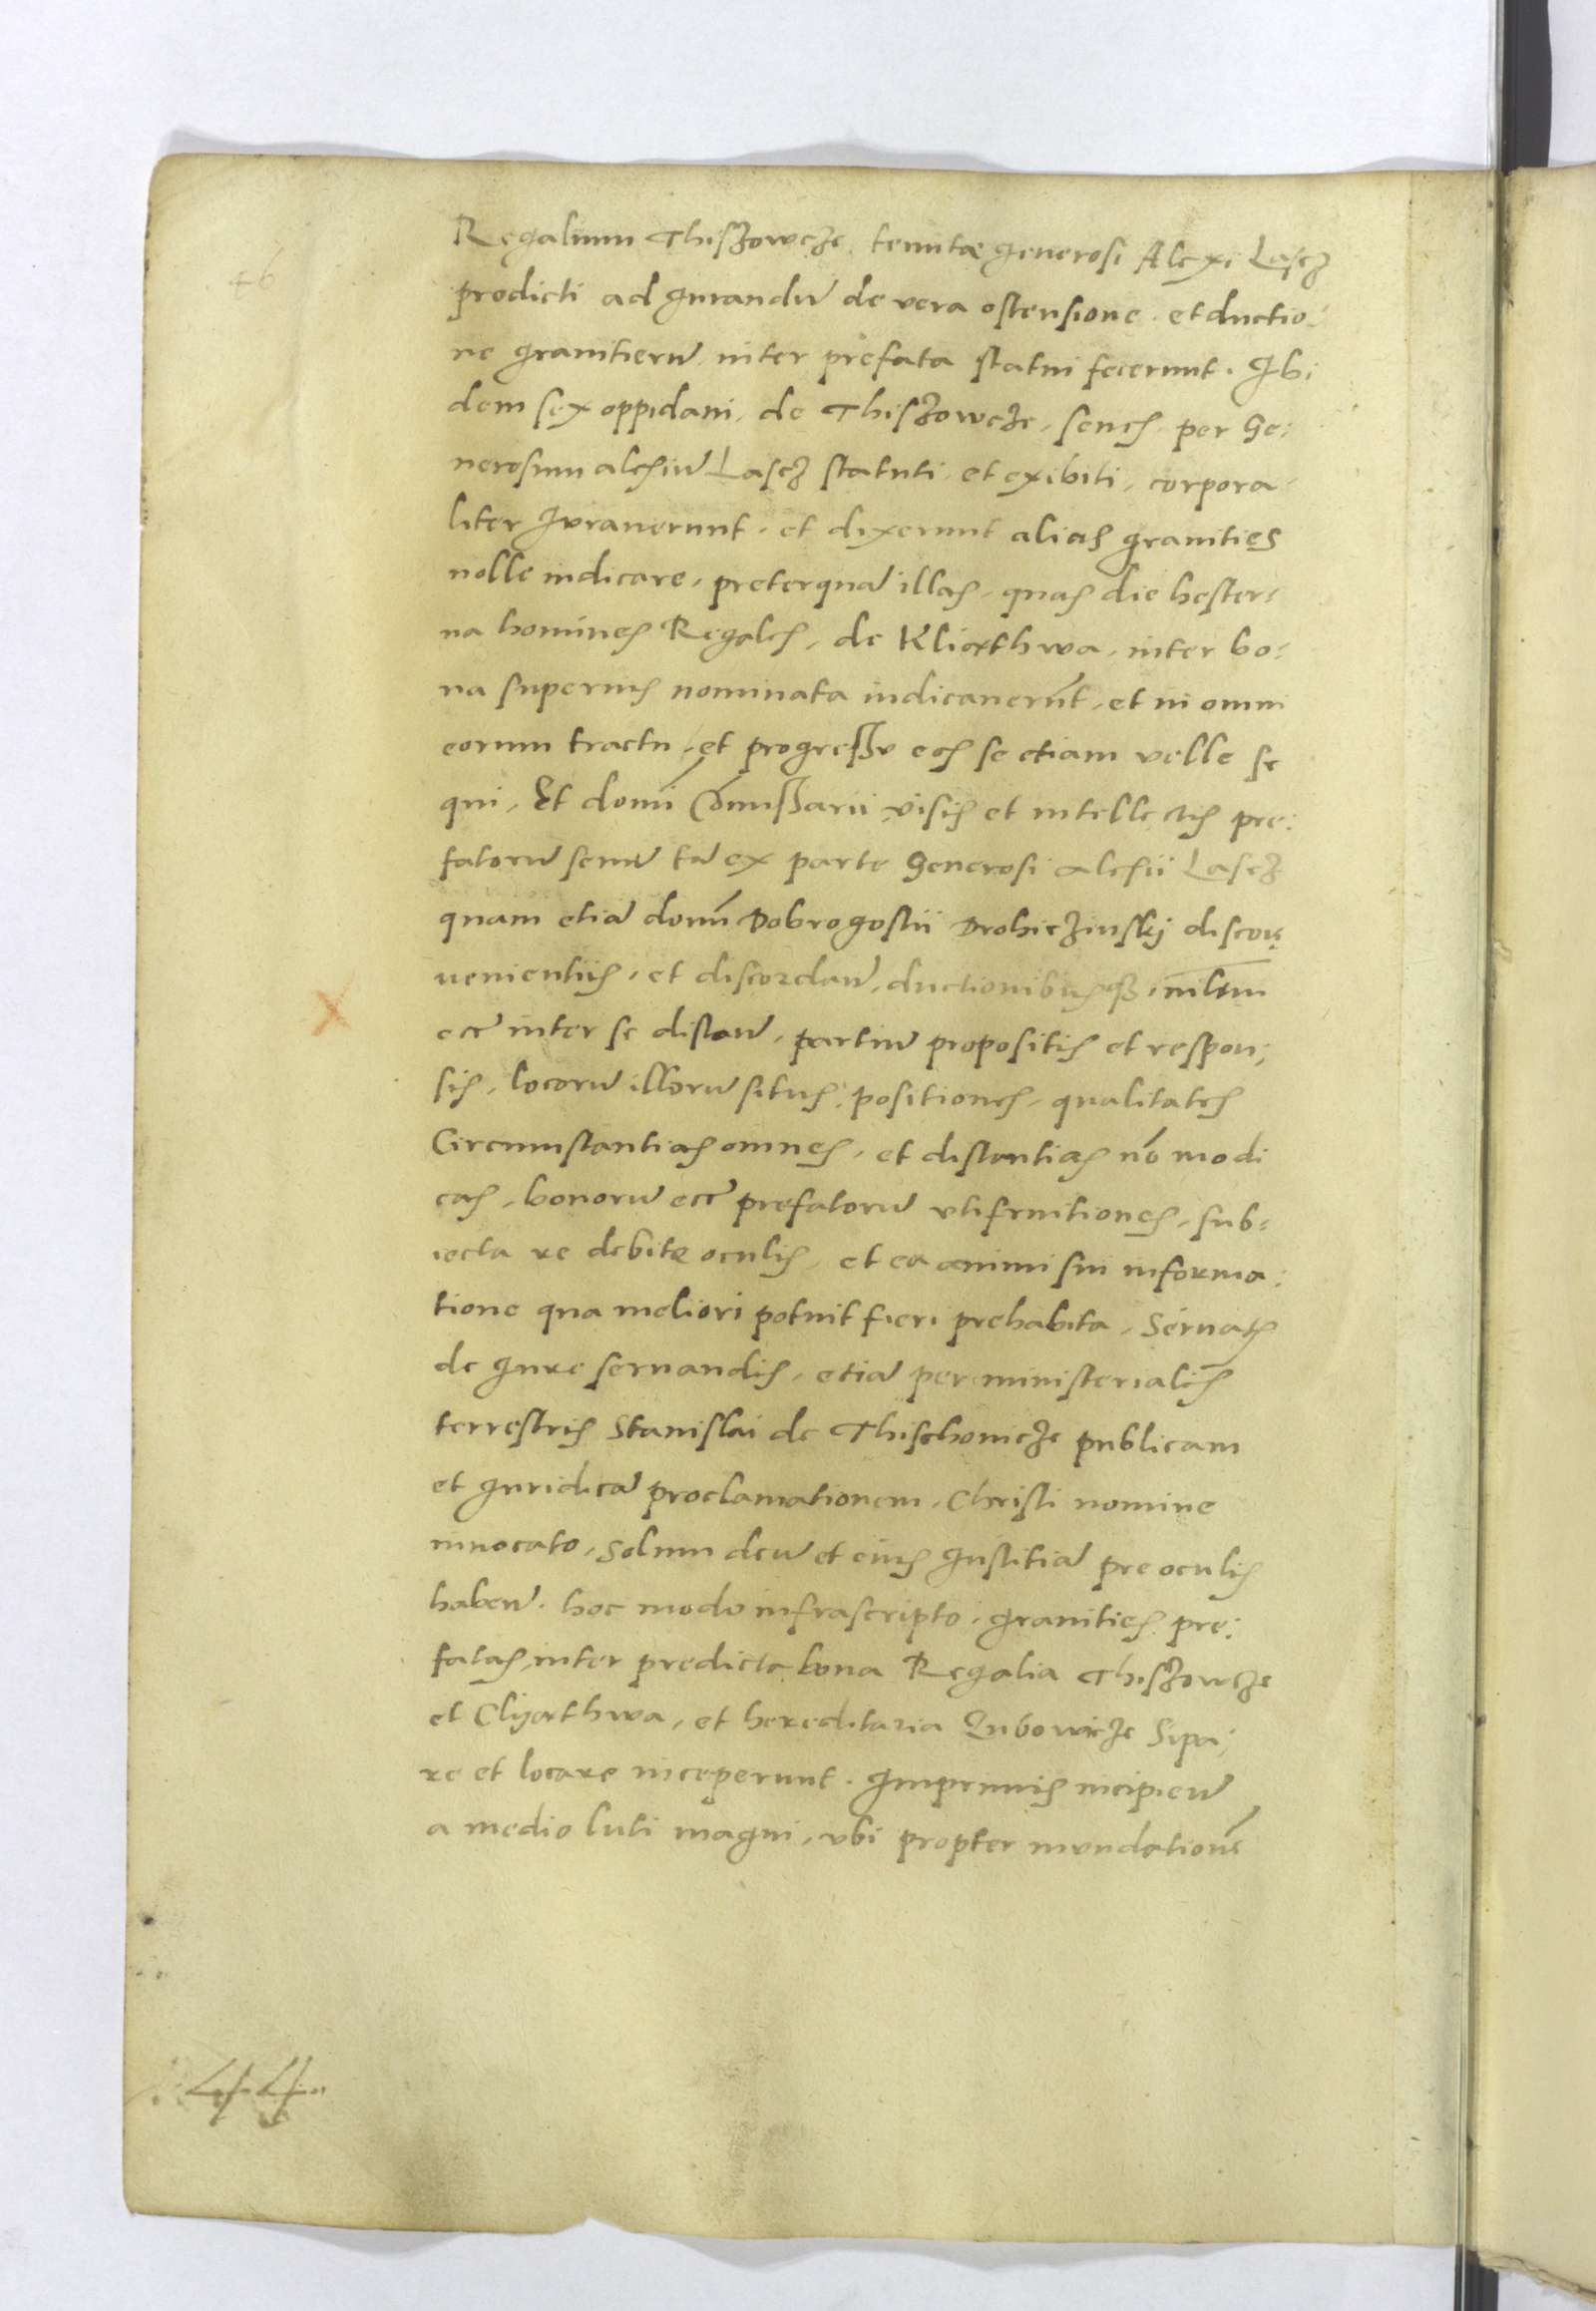 46
Regalium Thiszowcze tenutæ generosi Alexi Lascz
predicti ad Jurandũ de vera ostensione et ductio:
ne granitierũ inter prefata statui fecerunt. Ibi
dem sex oppidani de Thiszowcze, senes per Ge:
nerosum alexiũ Lascz statuti et exibiti, corpora
liter Iuraverunt et dixerunt alias granities
nolle indicare, preterquã illas, quas die hester:
na homines Regales, de Kliathwa, inter bo:
na superius nominata indicauerũt, et in omni
eorum tractu, et progressu eos se etiam velle se
qui, Et domĩ Cõmissarii, visis et intellectis pre:
fatorũ senũ tã ex parte Generosi alexii Lascz
quam etiã domĩ Dobrogostii Drohiczinskj discon
uenientiis, et discordañ, ductionibusqȝ,
inter se distañ, partiũ propositis et respon:
sis, locorũ illorũ situs, positiones, qualitates
Circumstantias omnes, et distantias nõ modi
cas, bonorũ prefatorũ utifruitiones, sub:
iecta re debite oculis, et ea animi sui informa:
tione qua meliori potuit fieri prehabita, Seruatis
de Iure seruandis, etiã per ministerialis
terrestris Stanislai de Thischowicze publicam
et Iuridicã proclamationem, Christi nomine
inuocato, Solum deũ et eius Iustitiã pre oculis
habeñ. hoc modo infrascripto, granities pre:
fatas, inter predicta bona Regalia Thiszowcze
et Clyathwa, et hereditaria Zubowicze Sipa:
re et locare inceperunt. Imprimis incipieñ
a medio luti magni, vbi propter inundationẽ
44